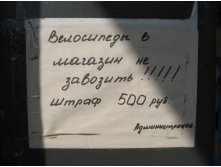 Велосипеды в
магазин не
завозить !!!!!
штраф 500 руб
Администрация